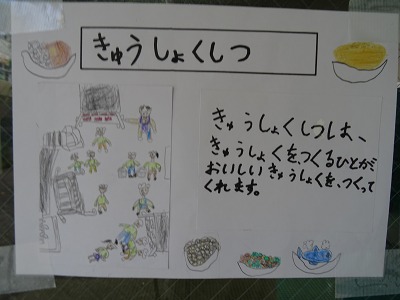 きゅうしょくしつ
きゅうしょくしつは、
きゅうしょくを、つくるひとが、
おいしいきゅうしょくを、つくって
くれます。